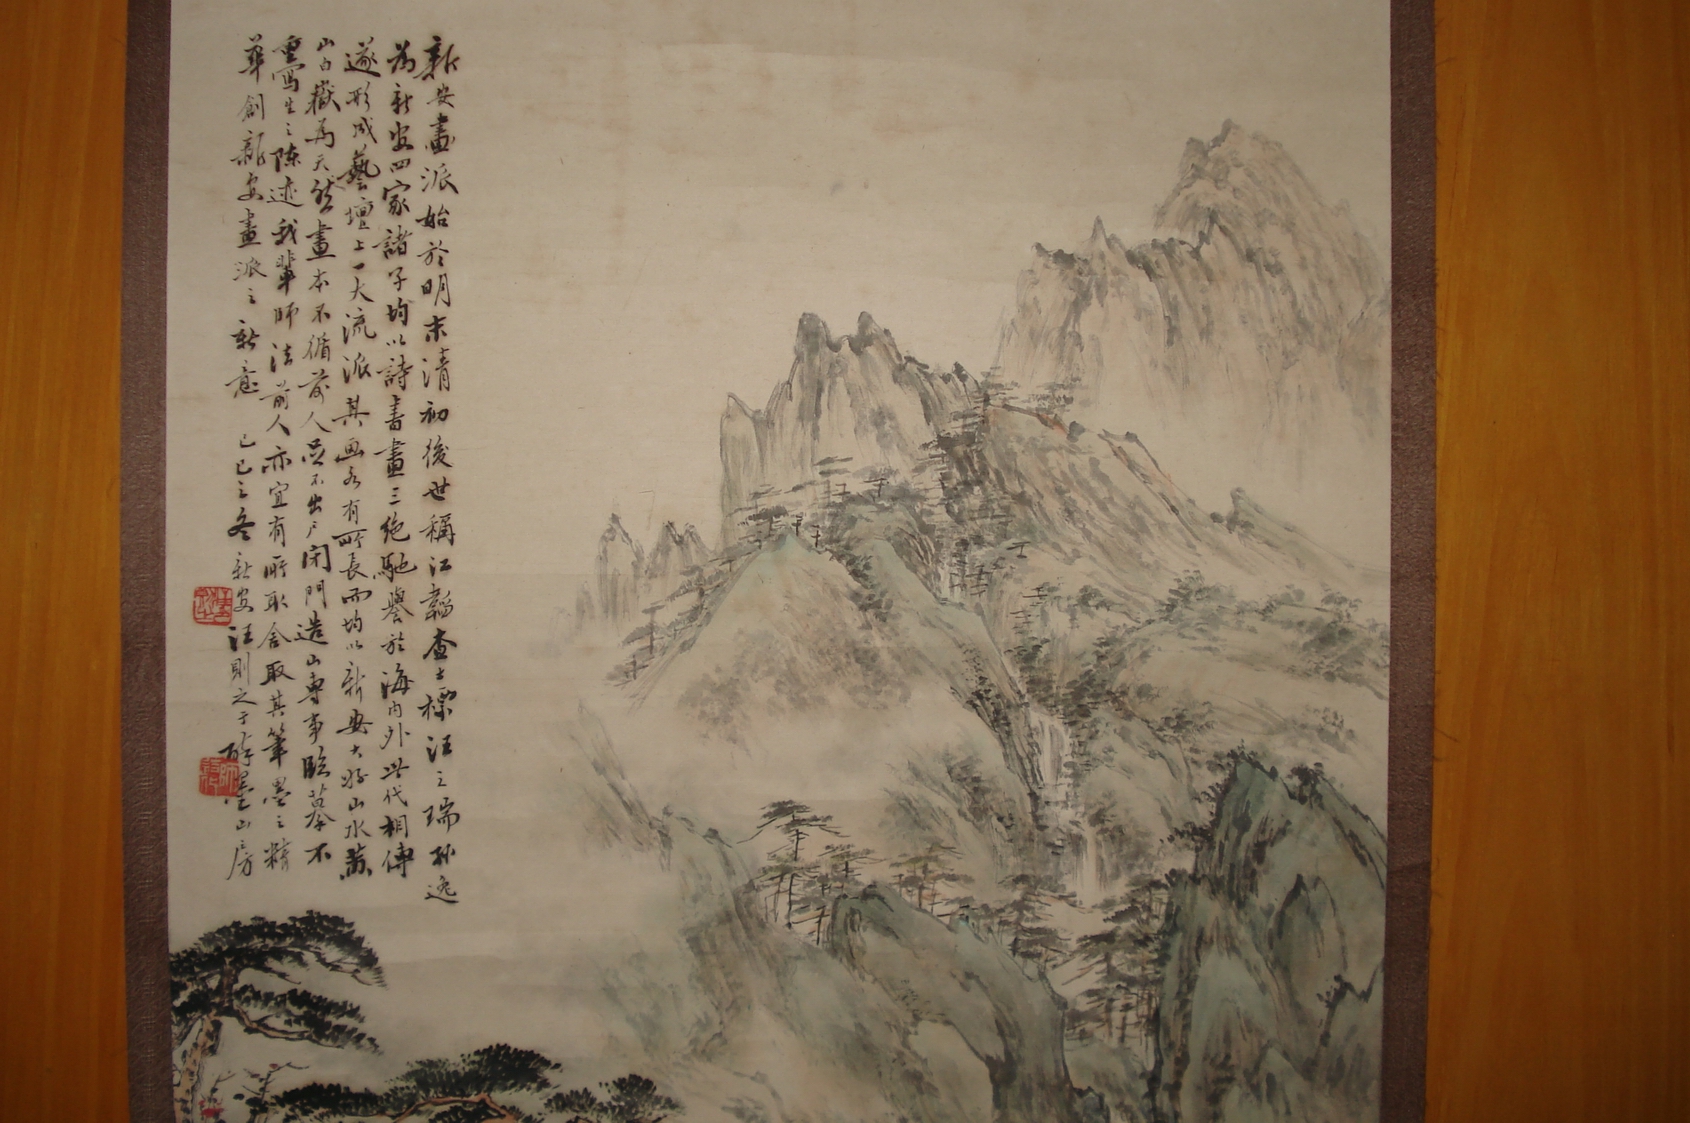 新安畫派始於明末清初後世稱江韜查士標汪之瑞孙逸
為新安四家諸子均以詩書畫三绝馳譽於海内外世代相傳
遂形成藝壇上一大流派其画各有所長而均以新安大好山水黄
山白嶽為天然畫本不循前人足不出户闭門造山專事臨摹不
重写生之陈迹我輩師法前人亦宜有所取舍取其筆墨之精
華創新安畫派之新意 己巳之冬新安汪則之于醉墨山房